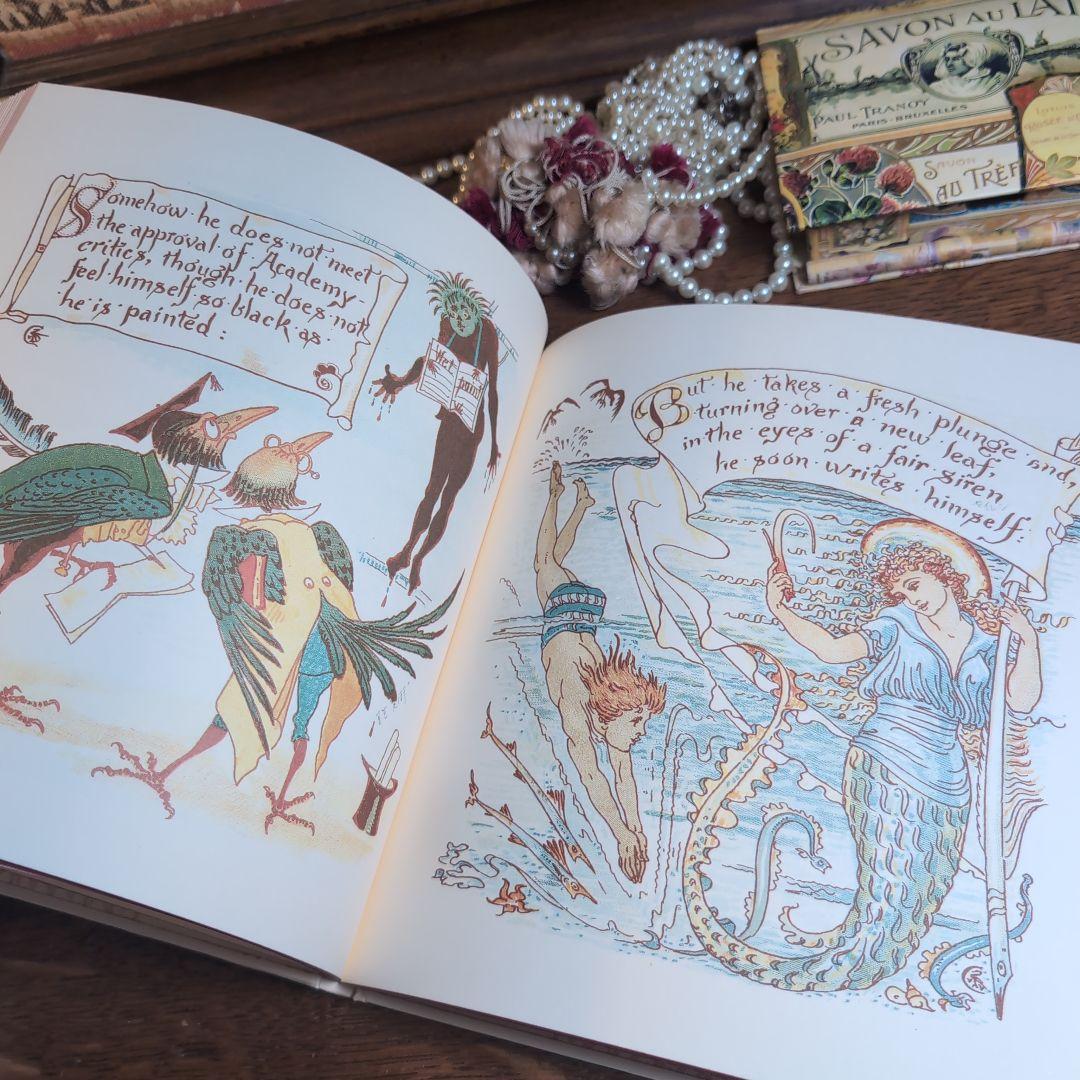 Somehow·he does·not·meet
the approval of·Academy-
critics, though he does·not
feel himself so black as·
he is painted:
Wet paint
But he takes a fresh plunge and,
turning over a new leaf,
in the eyes of a fair siren
he soon writes himself:
SAVON AU LAI
PAUL TRANOY
PARIS-BRUXELLES
SAVON
AU TRÈF
LOTUS